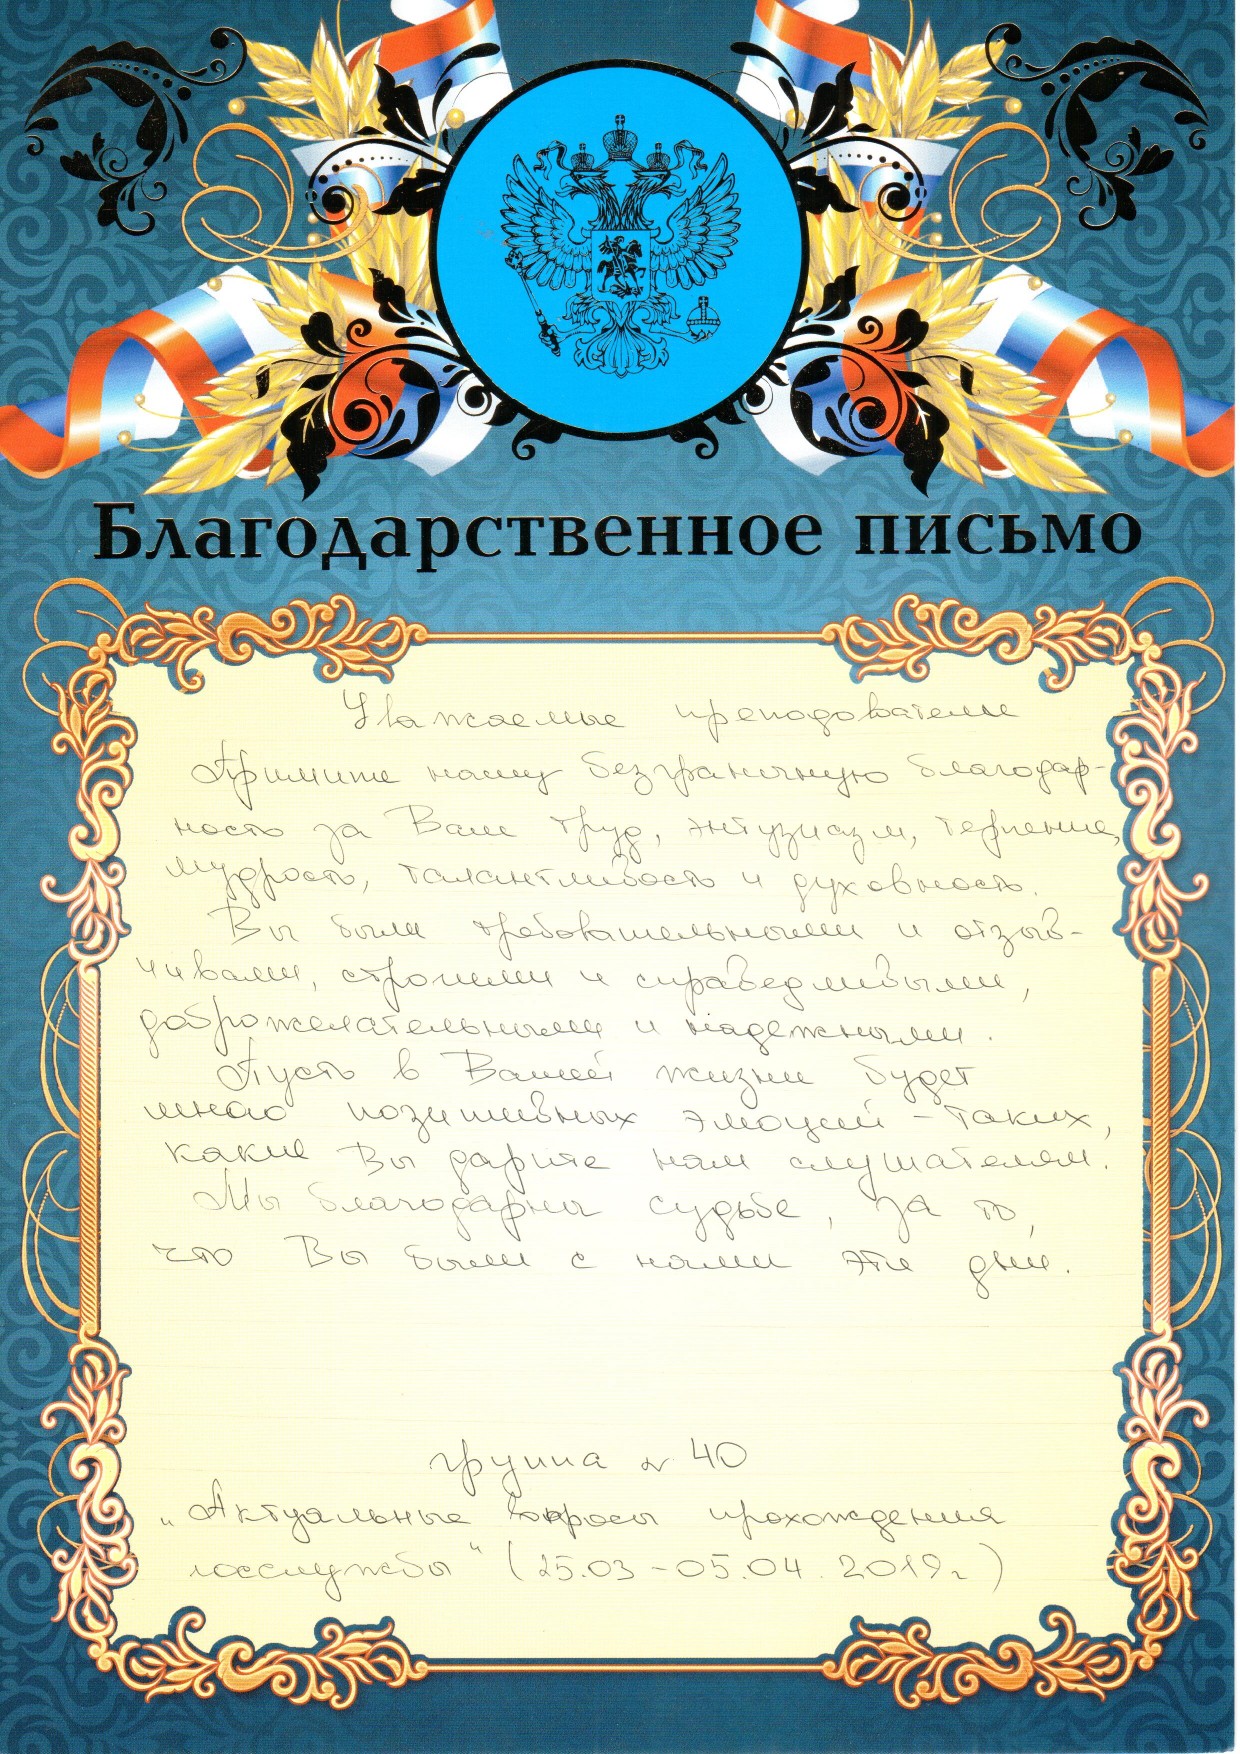 Благодарственное письмо
Уважаемые преподователи
Примите нашу безграничную благодар-
ность за Ваш труд, энтузиазм, терпение,
мудрость, талантливость и духовность.
Вы были требовательными и отзыв-
чивами, строгими и справедливыми,
доброжелательными и надежными.
Пусть в Вашей жизни будет
много позитивных эмоций - таких,
какие Вы дарите нам слушателям.
Мы благодарны судьбе, за то,
что Вы были с нами эти дни.
группа № 40
"Актуальные вопросы прохождения
госслужбы" (25.03 - 05.04. 2019г)